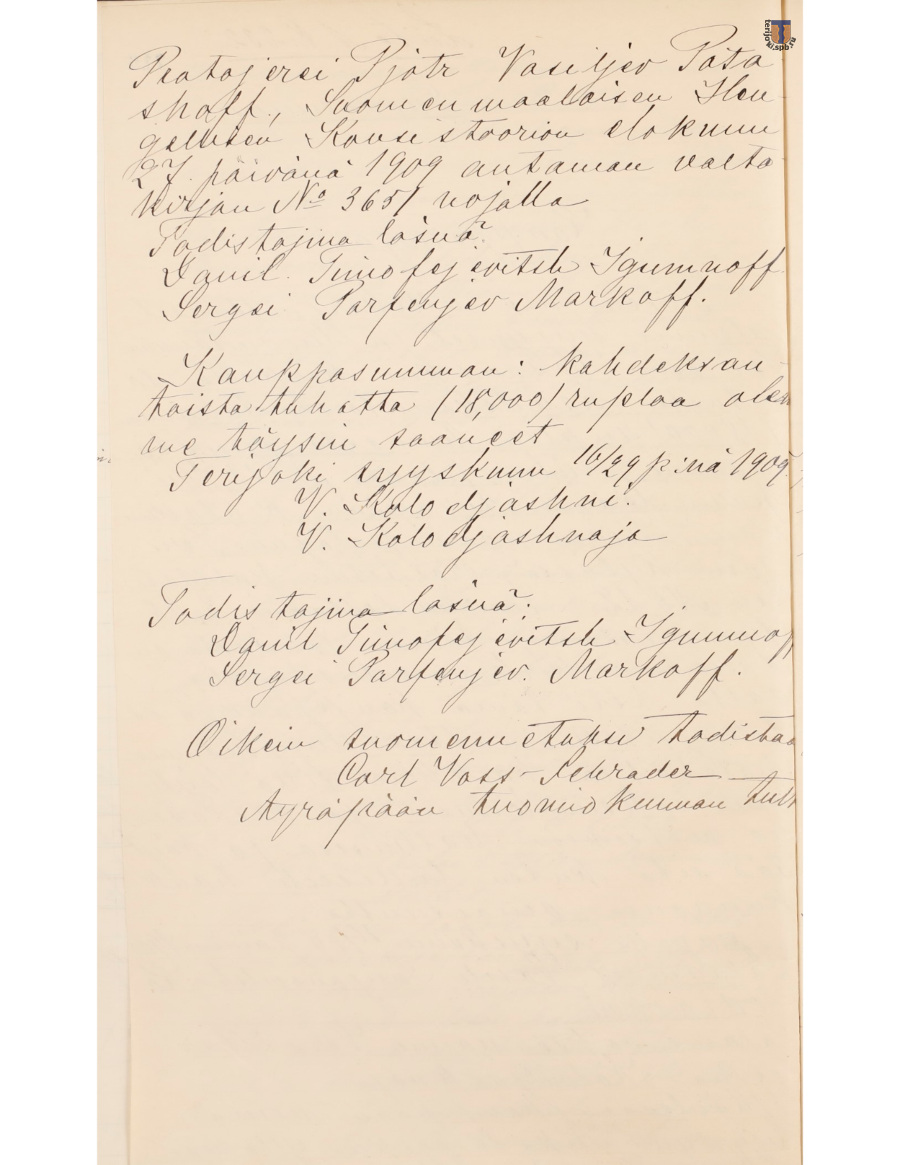 Protojerei Pjotr Vasiljev Pota
shoff, Suomenmaalaisen Hen-
gellisen Konsistoorion elokuun
27 päivänä 1909 antaman valta
kirjan No 3651 nojalla
Todistajina läsnä:
Danil Timofejevitsh Igumnoff
Sergei Parfenjev Markoff.
Kauppasumman: kahdeksan-
toista tuhatta (18,000) ruplaa olem
me täysin saaneet
Terijoki syyskuun 16/29 p:nä 1909.
V. Kolodjashni.
V. Kolodjashnaja
Todistajina läsnä:
Danil Timofejevitsh Igumnoff
Sergei Parfenjev. Markoff.
Oikein suomennetuksi todistaa
Carl Voss-Schrader
Äyräpään tuomiokunnan tulk
terijoki.spb.ru